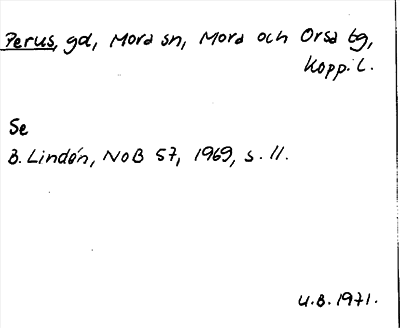 Perus, gd, Mora sn, Mora och Orsa tg,
Kopp. l.
Se
B. Lindén, NoB 57, 1969, s. 11.
U.B. 1971.